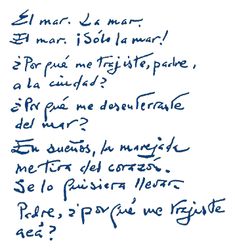 El mar. La mar.
El mar. ¡Sólo la mar!
¿Por qué me trajiste, padre,
a la ciudad?
¿Por qué me desenterraste
del mar?
En sueños, la marejada
me tira del corazón.
Se lo quisiera llevar.
Padre, ¿por qué me trajiste
acá?